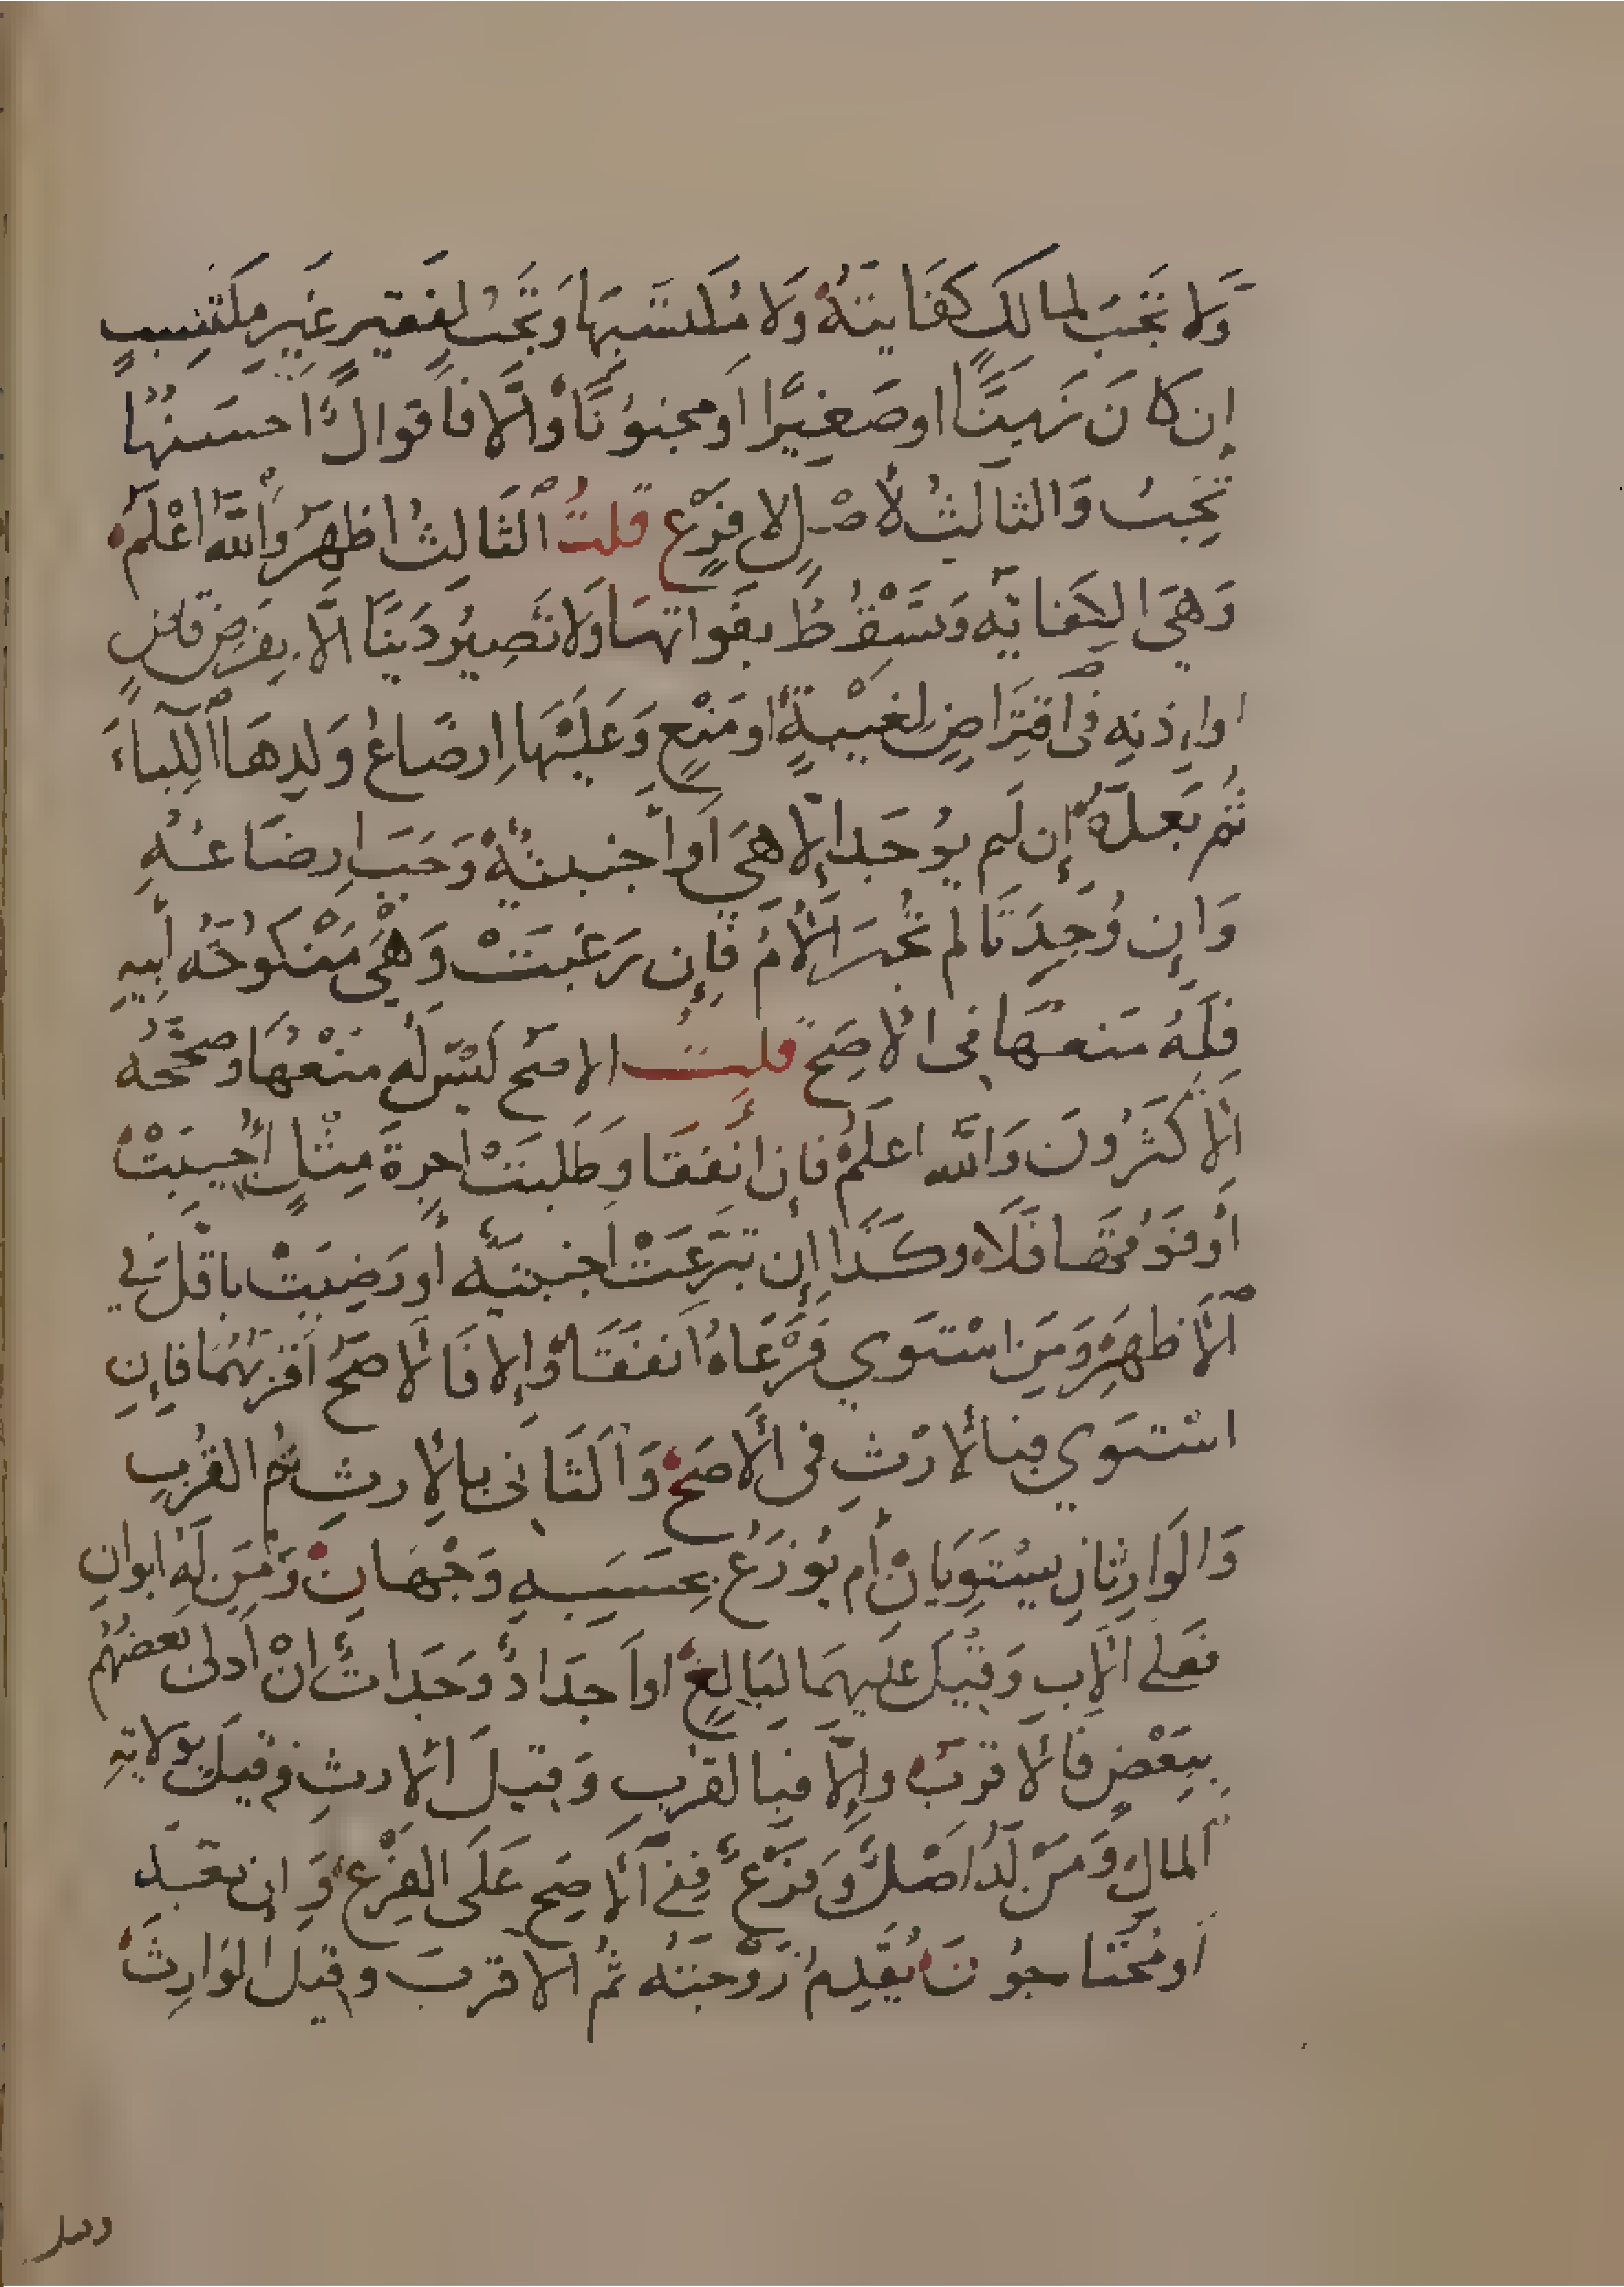 وَلا تَجَبُ لمالكِ كفَايتهُ وَلا مُكتسَبهَا وَتَجبُ لفقيرٍ غَيرِ مكتسِبٍ
إن كانَ زَمِنًا اوصَغِيًرا اومجنوُنًا وَإلّا فأقوالٌ احسَنهُا
تَجِبُ وَالثالثُ لأصْلٍ لا فَرْعٍ قلتُ الثَالثُ اظهَرُ وَاللهُ اعْلمُ
وَهيَ الكِفايَه وَتَسْقُطُ بفَواتهَا وَلا تَصِيرُ دَينًا إلّا بفَرضِ قاضٍ
اواِذنِه فى اقتِرَاضٍ لغَيْبةٍ اومَنْعٍ وَعَليْهَا اِرضَاعُ وَلدِهَا اللِبأَ
ثمُ بَعدَهُ إن لَم يوُجَد إلا هىَ اَواَجنبيّةٌ وَجَبَ ارضَاعُهِ
وَاِن وُجِدَتَا لم تُجبَر الأُمُ فإن رَغبَتْ وَهْىَ مَنْكوُحَهُ أبيهِ
فلَهُ مَنعهَا فى الاصَحِ قلت الاصَح ليْسَ لهُ منْعُهَا وصححَّهُ
الاكثَرُونَ وَالله اعلَمُ فإن انفقَا وَطلبَتْ اجرةَ مِثلٍ أجُيبَتْ
أوفَوْقهَا فَلَا وكذَا إن تبرّعَتْ اجنبيَه أو رَضِيَتْ باقلّ في
الأظهَرِ وَمَن اسْتوَي فَرْعَاهُ انفقَا وَإلا فَالاصَحُ اقرَبهُمَا فإن
استوَي فبالأرْثِ فى الأصَحِ وَالثَانى بالإرثِ ثمُ القُربِ
وَالوَارِثانِ يسْتوَيَانِ أم يوُزَعُ بحَسَبهِ وَجْهَانِ وَمَن لهُ ابوانِ
فعَلى الأبِ وَقيلَ عليهِمَا لبَالغٍ اواَجدَادٌ وَجَداتٌ انْ أدلىَ بعَضهُم
ببَعْضٍ فالأقرَبُ وإلّا فبِالقربِ وَقيلَ الأرثِ وقيلَ بولايَةِ
المالِ وَمَنْ لهُ اصْلٌ وَفرْعٌ ففِى الأصَحِ عَلَى الفرْعِ وَ
اومُحتاجوُنَ يُقَدِمُ زَوْجتَهُ ثمُ الاقرَبَ وقيلَ الوَارِثَ